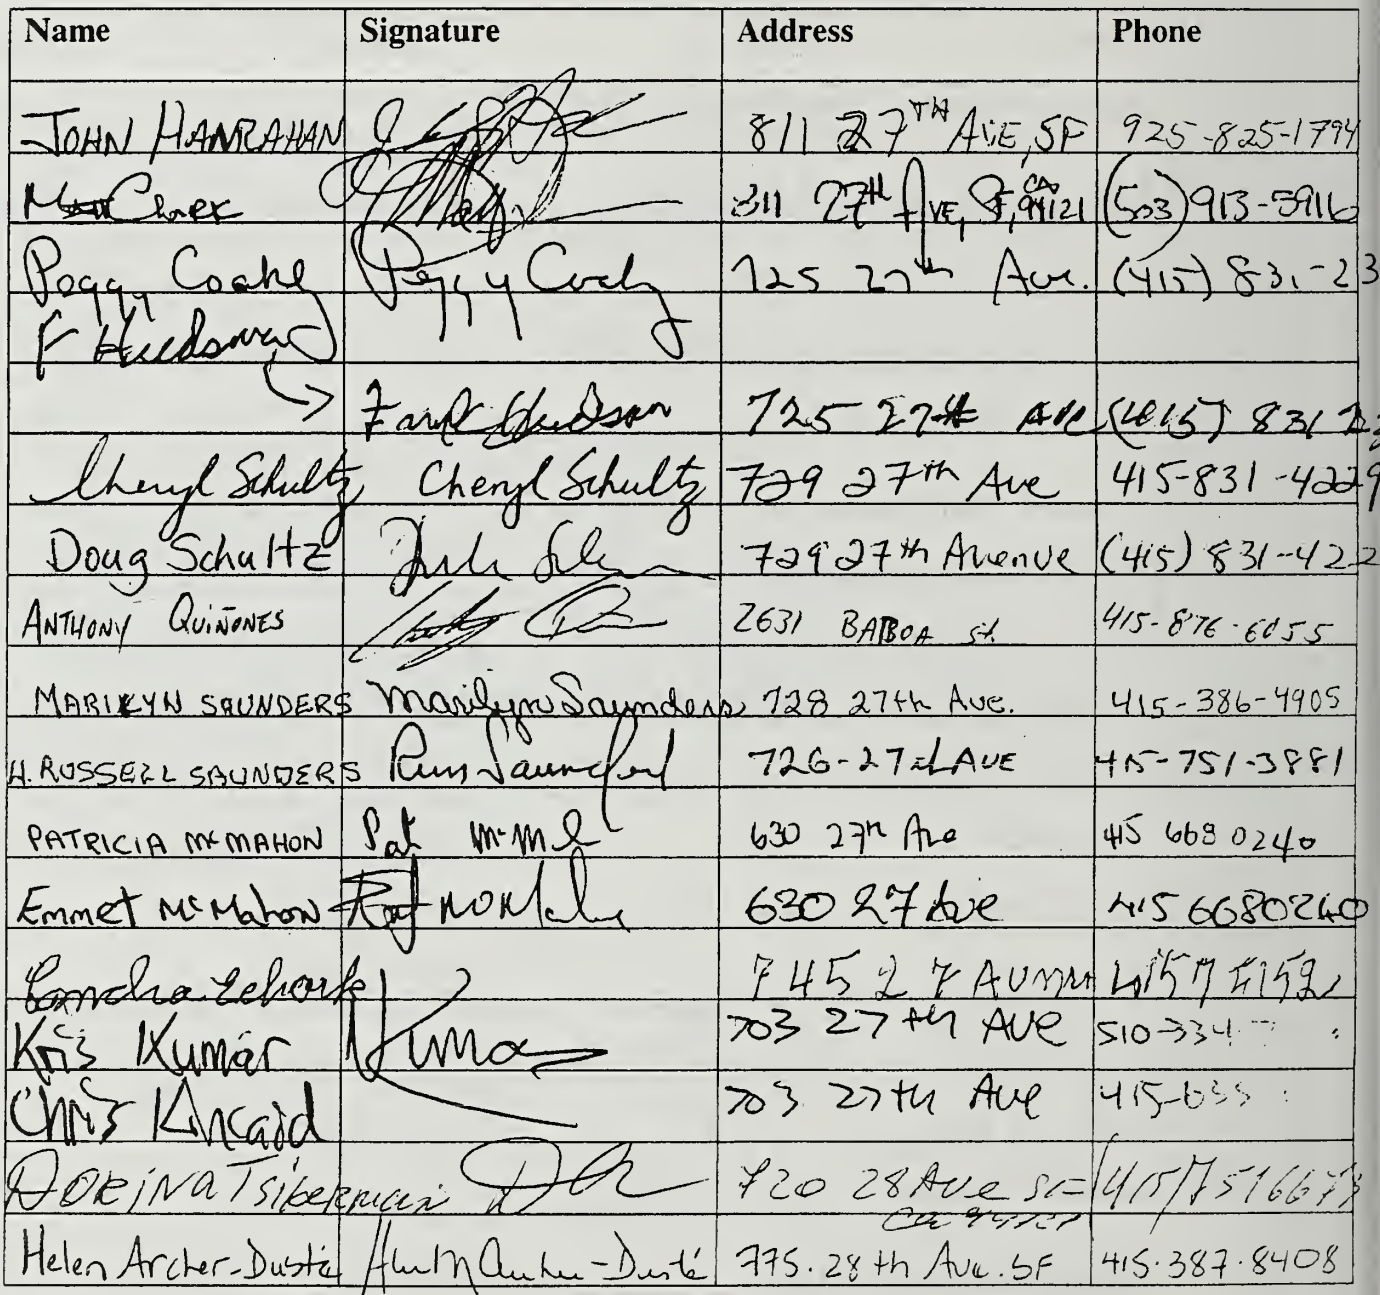 Name Signature Address Phone
JOHN HANRAHAN 811 27TH AVE, SF 925-825-1794
Clark 811 27th AVE, SF, CA 94121 (503) 913-5916
Peggy Coakley Peggy 725 27th Ave. (415) 831-23
F Huedsman
Hudson 725 27th Ave (415) 831
Cheryl Schultz Cheryl Schultz 729 27th Ave 415-831-4229
Doug Schultz 729 27th Avenue (415) 831-422
ANTHONY QUIÑONES 2631 BALBOA St. 415-876-6055
MARILYN SAUNDERS Marilyn Saunders 728 27th Ave. 415-386-4905
H. RUSSELL SAUNDERS Russ Saunders 726-27th AVE 415-751-3881
PATRICIA McMAHON Pat 630 27th Ave 415 668 0240
Emmet McMahon 630 27 Ave 415 6680240
745 27
Kris Kumar Kumar 703 27th AVE 510-334-
Chris Kincaid 703 27th Ave 415-
DORINA Tsiperman 720 28 Ave SF (415) 7516673
CA 94121
Helen Archer-Dusté Archer-Dusté 775.28th Ave. SF 415.387.8408